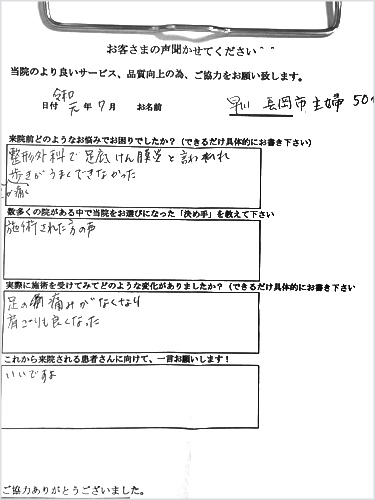 お客さまの声聞かせてください^^
当院のより良いサービス、品質向上の為、ご協力をお願い致します。
令和
日付 元年7月 お名前 早川 長岡市 主婦 50
来院前どのようなお悩みでお困りでしたか?(できるだけ具体的にお書き下さい)
整形外科で足底けん膜炎と言われ
歩きがうまくできなかった
が痛く
数多くの院がある中で当院をお選びになった「決め手」を教えて下さい
施術された方の声
実際に施術を受けてみてどのような変化がありましたか?(できるだけ具体的にお書き下さい
足の痛みがなくなり
肩こりも良くなった
これから来院される患者さんに向けて、一言お願いします!
いいですよ
ご協力ありがとうございました。